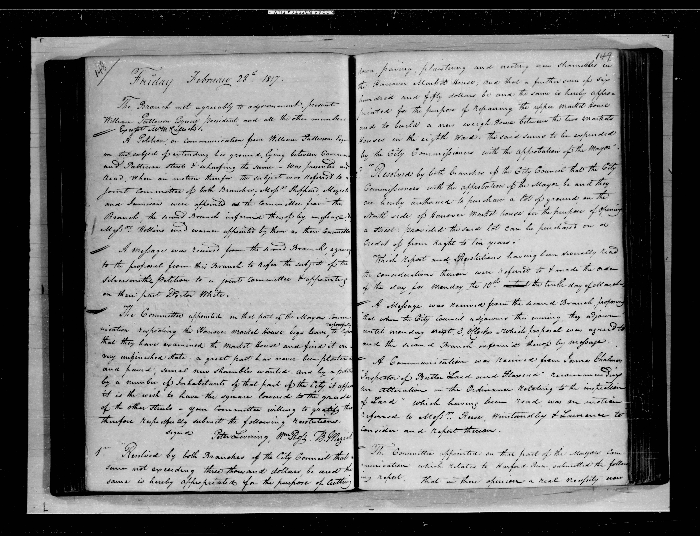 148
Friday February 28th 1817.
The Branch met agreeably to adjournment, present
William Patterson Esquire President and all the other members
Except Mr
A Petition or communication from William Patterson Esqr
on the subject of extending his ground, lying between Commerce
and Patterson Streets & wharfing the same - Was presented and
Read, When on motion therefor the subject was referred to a
joint committee of both Branches, Messrs Sheppard Mayer
and Jamison were appointed as the committee from this
Branch, the second Branch informed thereof by message &
Messrs and appointed by them as their Committee
A message was received from the second Branch agreeing
to the proposal from this Branch to refer the subject of the
Silversmiths Petition to a joint committee & appointing
on their part Doctor White.
The Committee appointed on that part of the Mayors commu-
nication respecting the Hanover market house begs leave to report
that they have examined the market house and find it in a
very unfinished state a great part has never been plastered
and paved, several new shambles wanted and by a petition
by a number of Inhabitants of that part of the City it appears
it is the wish to have the square lowered to the grade
of the other streets - your committee willing to gratify them
therefore respectfully submit the following resolutions.
signed Peter Wm Ross B. Mezick
1st Resolved by both Branches of the City Council that a
sum not exceeding three thousand dollars be and the
same is hereby appropriated for the purpose of cutting
149
down paving, plastering and erecting new shambles in
the Hanover Market House, and that a further sum of six
hundred and fifty dollars be and the same is hereby appro-
priated for the purpose of repairing the upper market house
and to build a new weigh house between the two markets
houses in the eighth Ward. the said sums to be expended
by the City Commissioners with the approbation of the Mayor.
2 Resolved by both branches of the City Council that the City
Commissioners with the approbation of the Mayor be and they
are hereby authorised to purchase a lot of ground on the
North side of Hanover Market house for the purpose of opening
a street. Provided the said lot can be purchased on a
credit of from eight to ten years.
Which report and Resolutions having been severally read
the considerations thereon were referred to & made the order
of the day for Monday the 10th the tenth day of March
A Message was received from the second Branch proposing
that when the City Council adjourns this evening they adjourn
until monday next 3 oClock which proposal was agreed to
and the second Branch informed thereof by message.
A Communication was received from James Chalmers
Inspector of Butter Lard and Flaxseed recommending
an alteration in the Ordinance relating to the inspection
of Lard which having been read was on motion
referred to Messrs Reese, & Lawrence to
consider and report thereon.
The Committee appointed on that part of the Mayors Com-
munication which relates to Harford Run submitted the follow-
ing report. that in their opinion a real necessity now